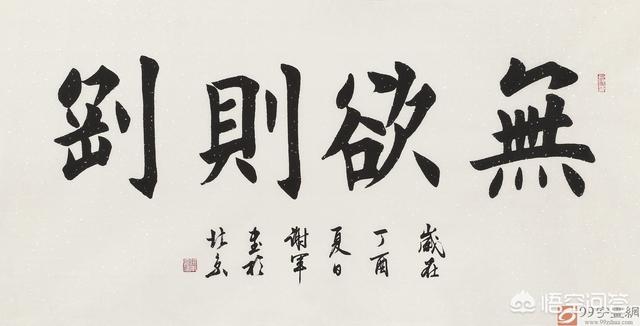 無欲則剛
歲在
丁酉
夏日
謝軍
書於
北京
悟空问答
99字画網